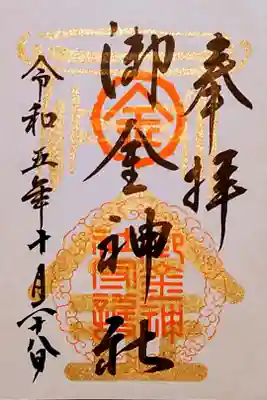 奉拝
御金神社
令和五年十月二十八日
金
御金神